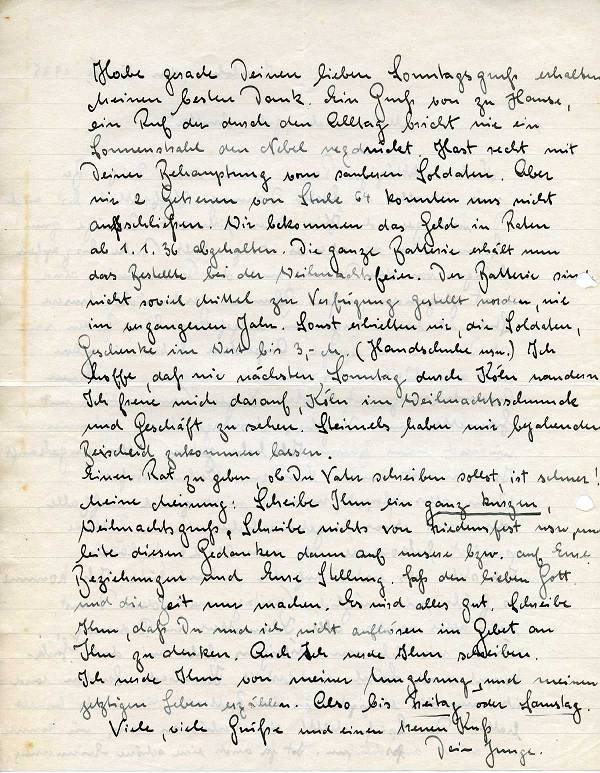 Habe gerade Deinen lieben Sonntagsgruß erhalten
Meinen besten Dank. Ein Gruß von zu Hause,
ein Ruf der durch den Alltag bricht wie ein
Sonnenstrahl den Nebel wegdrückt. Hast recht mit
Deiner Behauptung vom sauberen Soldaten. Aber
wir 2 Getreuen von Stube 64 konnten uns nicht
ausschließen. Wir bekommen das Geld in Raten
ab 1.1.36 abgehalten. Die ganze Batterie erhält nun
das Bestellte bei der Weihnachtsfeier. Der Batterie sind
nicht soviel Mittel zur Verfügung gestellt worden, wie
im vergangenen Jahr. Sonst erhielten wir, die Soldaten,
Geschenke im Wert bis 3,- (Handschuhe usw.) Ich
hoffe, daß wir nächsten Sonntag durch Köln wandern
Ich freue mich darauf, Köln im Weihnachtsschmuck
und Geschäft zu sehen. haben mir
Bescheid zukommen lassen.
Einen Rat zu geben, ob Du Vater schreiben sollst, ist schwer!
Meine Meinung: Schreibe Ihm ein ganz kurzen,
Weihnachtsgruß, Schreibe nichts von Friedensfest usw. und
leite diesen Gedanken dann auf unsere bzw. auf Eure
Beziehungen und Eure Stellung. Laß den lieben Gott
und die Zeit nur machen. Es wird alles gut. Schreibe
Ihm, daß Du und ich nicht aufhören im Gebet an
Ihn zu denken. Auch Ich werde Ihm schreiben.
Ich werde Ihm von meiner Umgebung und meinem
jetzigen Leben erzählen. Also bis Freitag oder Samstag.
Viele, viele Grüße und einen treuen Kuß
Dein Junge.